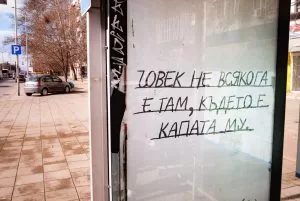 ЧОВЕК НЕ ВСЯКОГА
Е ТАМ, КЪДЕТО Е
КАПАТА МУ.
P